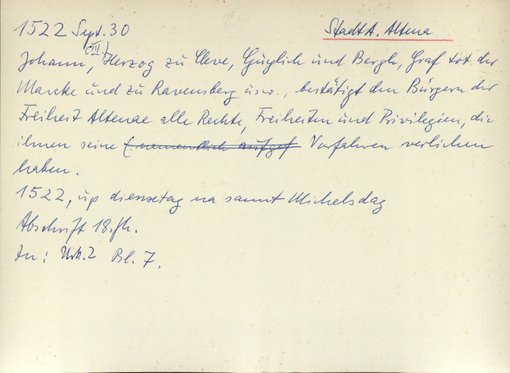 1522 Sept. 30 StadtA. Altena
Johann (III), Herzog zu Cleve, Guylich und Bergh, Graf tot der
Marcke und zu Ravensberg usw., bestätigt den Bürgern der
Freiheit Altenae alle Rechte, Freiheiten und Privilegien, die
ihnen seine (namentlich aufgef Vorfahren verliehen
haben.
1522, up diensetag na sannt Michelsdag
Abschrift 18. Jh.
In: Urk. 2 Bl. 7.